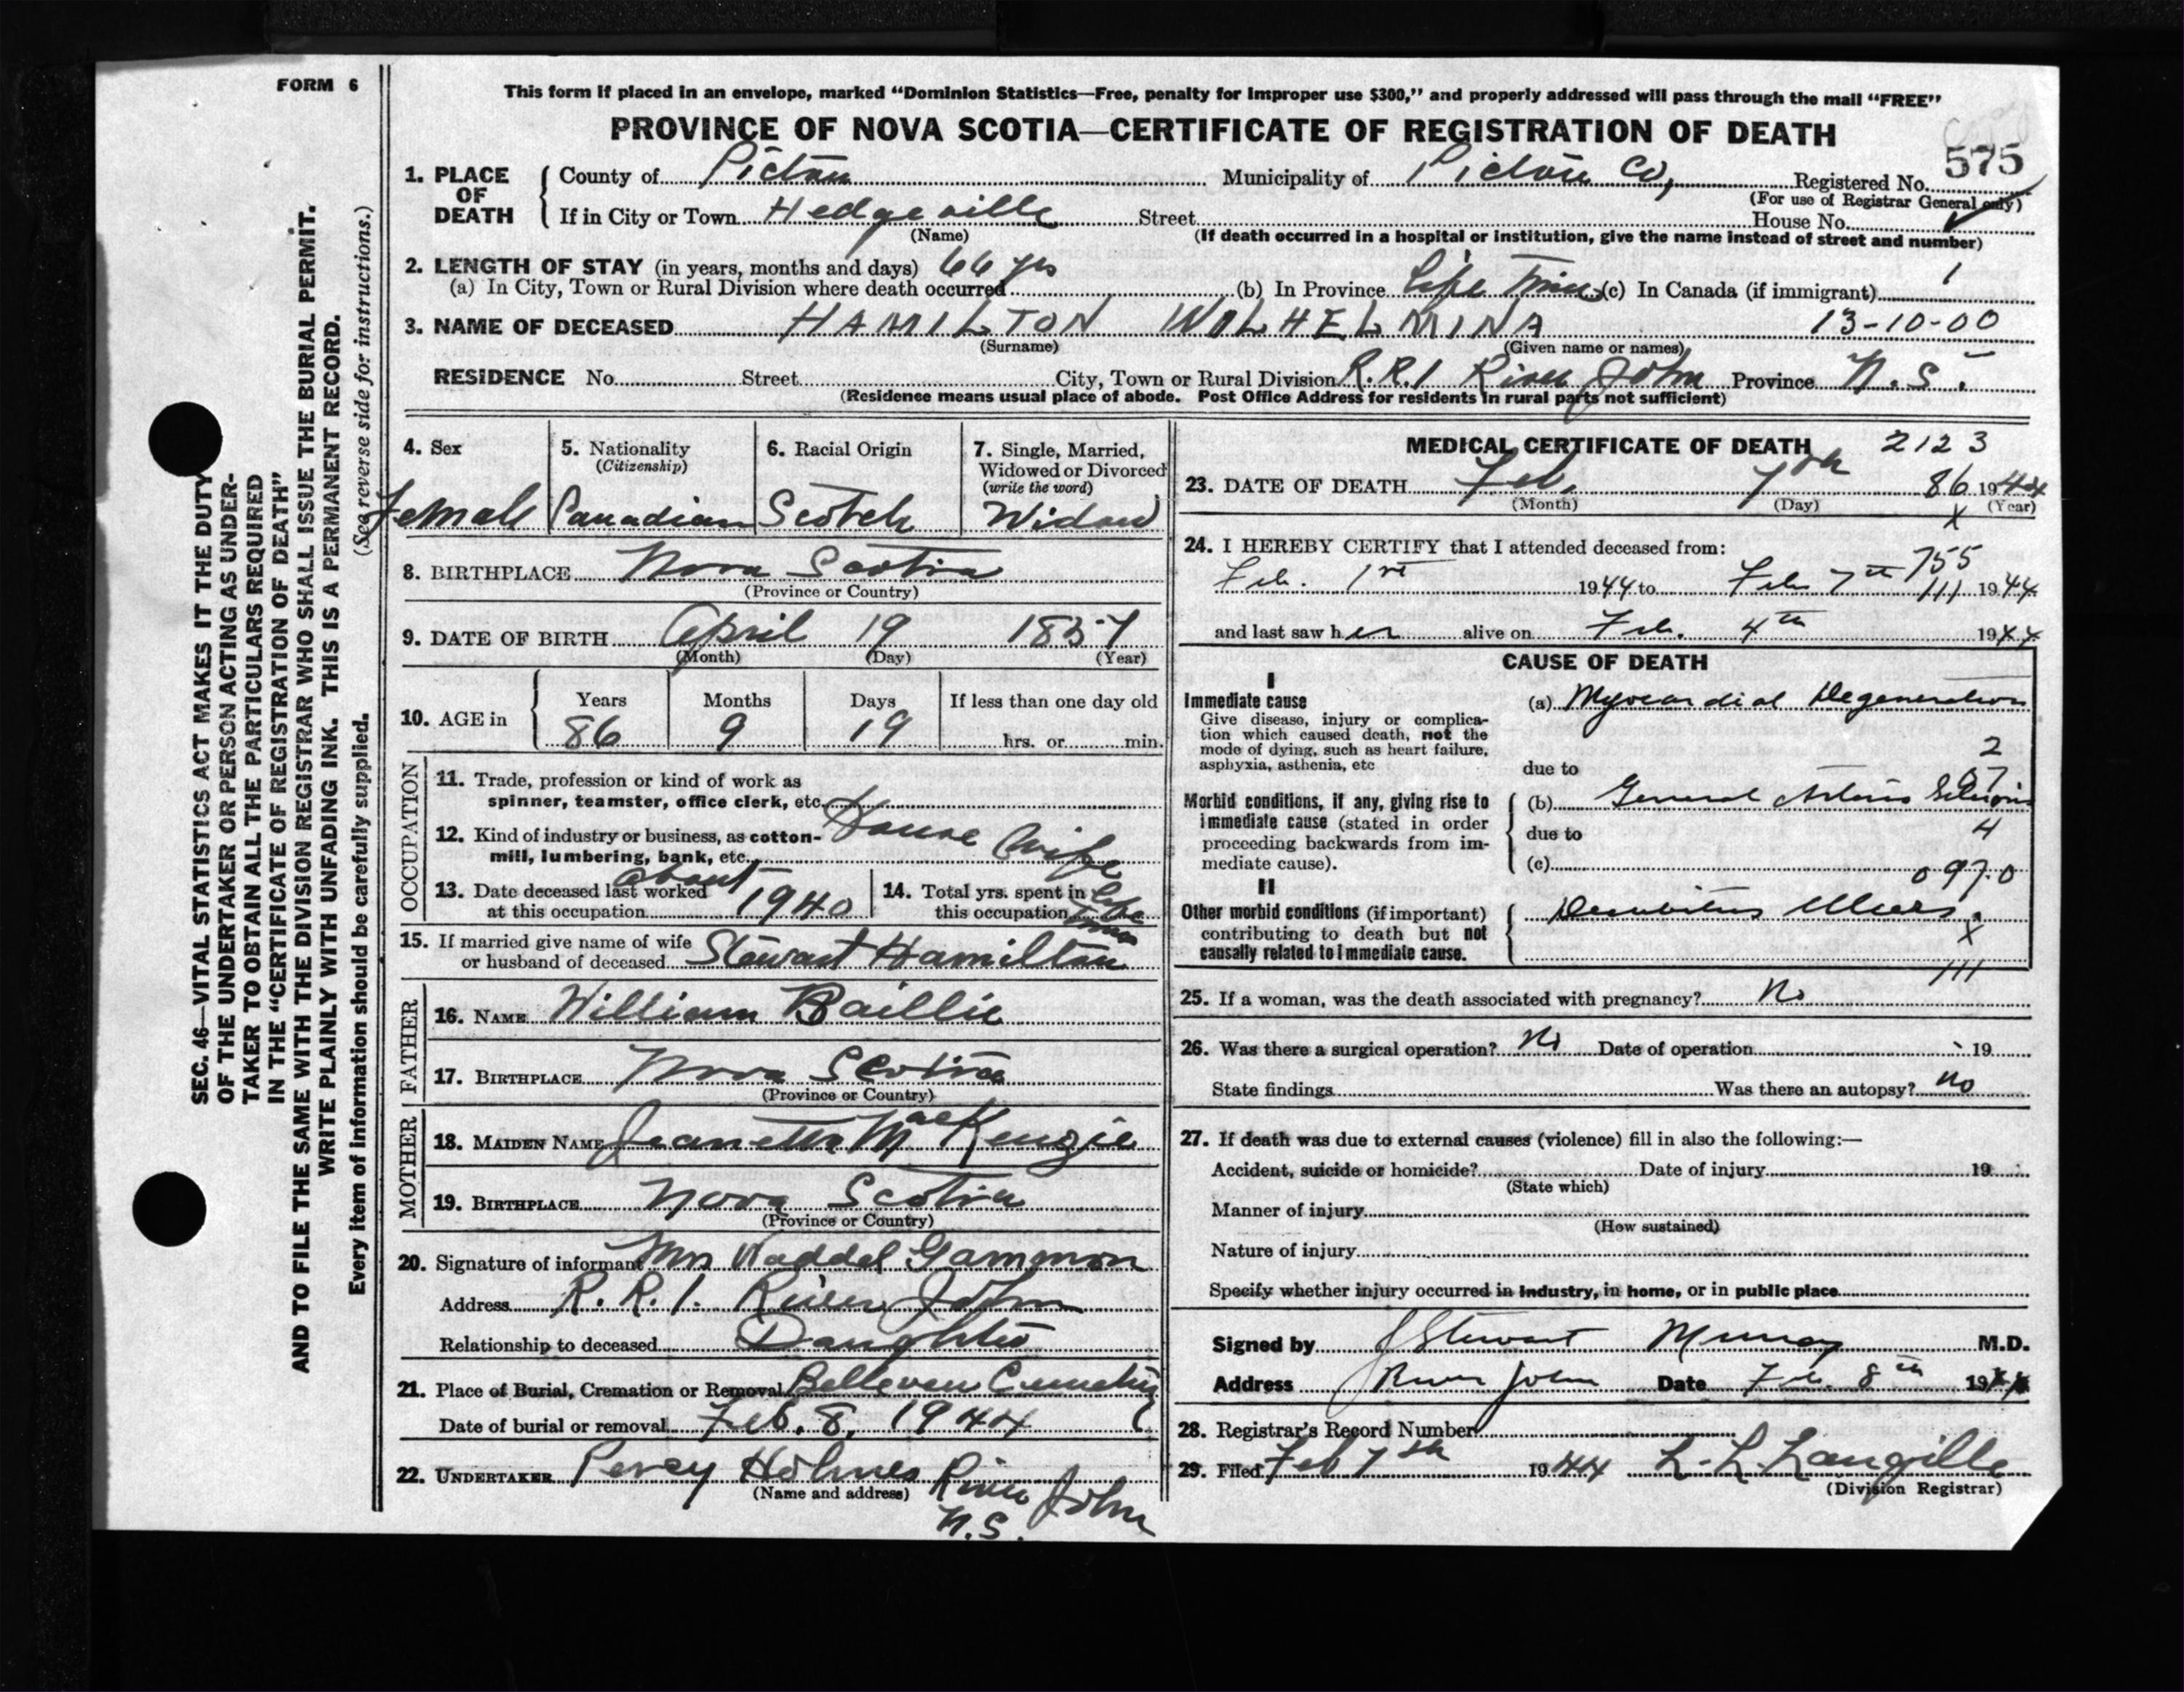 FORM 6
This form if placed in an envelope, marked “Dominion Statistics—Free, penalty for improper use $300,” and properly addressed will pass through the mail “FREE”
PROVINCE OF NOVA SCOTIA—CERTIFICATE OF REGISTRATION OF DEATH
575
1. PLACE OF DEATH County of Pictou Municipality of Pictou Co, Registered No.
(For use of Registrar General only)
If in City or Town Hedgeville Street House No.
(Name) (If death occurred in a hospital or institution, give the name instead of street and number)
2. LENGTH OF STAY (in years, months and days) 66 yrs
(a) In City, Town or Rural Division where death occurred (b) In Province Life Time (c) In Canada (if immigrant) 1
3. NAME OF DECEASED HAMILTON WILHELMINA 13-10-00
(Surname) (Given name or names)
RESIDENCE No. Street City, Town or Rural Division R.R.1 River John Province N.S.
(Residence means usual place of abode. Post Office Address for residents in rural parts not sufficient)
4. Sex 5. Nationality (Citizenship) 6. Racial Origin 7. Single, Married, Widowed or Divorced (write the word)
Female Canadian Scotch Widow
8. BIRTHPLACE Nova Scotia
(Province or Country)
9. DATE OF BIRTH April 19 1857
(Month) (Day) (Year)
10. AGE in Years Months Days If less than one day old
86 9 19 hrs. or min.
OCCUPATION
11. Trade, profession or kind of work as
spinner, teamster, office clerk, etc.
House Wife
12. Kind of industry or business, as cotton-
mill, lumbering, bank, etc.
13. Date deceased last worked
at this occupation about 1940
14. Total yrs. spent in
this occupation Life Time
15. If married give name of wife
or husband of deceased Stewart Hamilton
FATHER
16. NAME William Baillie
17. BIRTHPLACE Nova Scotia
(Province or Country)
MOTHER
18. MAIDEN NAME Jeanetta MacKenzie
19. BIRTHPLACE Nova Scotia
(Province or Country)
20. Signature of informant Mrs Waddel Gammon
Address R.R.1. River John
Relationship to deceased Daughter
21. Place of Burial, Cremation or Removal Bellevue Cemetery
Date of burial or removal Feb. 8, 1944
22. UNDERTAKER Percy Holmes River John
(Name and address)
N.S.
MEDICAL CERTIFICATE OF DEATH 2123
23. DATE OF DEATH Feb. 7th 86 1944
(Month) (Day) (Year)
x
24. I HEREBY CERTIFY that I attended deceased from:
755
Feb. 1st 1944 to Feb 7th 111 1944
and last saw her alive on Feb. 4th 1944
CAUSE OF DEATH
I
Immediate cause
Give disease, injury or complica-
tion which caused death, not the
mode of dying, such as heart failure,
asphyxia, asthenia, etc
(a) Myocardial Degeneration
2
due to
Morbid conditions, if any, giving rise to
immediate cause (stated in order
proceeding backwards from im-
mediate cause).
(b) General Arterio Sclerosis
due to 4
(c) 097.0
II
Other morbid conditions (if important)
contributing to death but not
causally related to immediate cause.
Decubitus Ulcers.
x
111
25. If a woman, was the death associated with pregnancy? No
26. Was there a surgical operation? No Date of operation 19
State findings Was there an autopsy? no
27. If death was due to external causes (violence) fill in also the following:—
Accident, suicide or homicide? Date of injury 19
(State which)
Manner of injury
(How sustained)
Nature of injury
Specify whether injury occurred in industry, in home, or in public place
Signed by J Stewart Murray M.D.
Address River John Date Feb. 8th 1944
28. Registrar's Record Number
29. Filed Feb 7th 1944 L. L. Langille
(Division Registrar)
SEC. 46—VITAL STATISTICS ACT MAKES IT THE DUTY
OF THE UNDERTAKER OR PERSON ACTING AS UNDER-
TAKER TO OBTAIN ALL THE PARTICULARS REQUIRED
IN THE “CERTIFICATE OF REGISTRATION OF DEATH”
AND TO FILE THE SAME WITH THE DIVISION REGISTRAR WHO SHALL ISSUE THE BURIAL PERMIT.
WRITE PLAINLY WITH UNFADING INK. THIS IS A PERMANENT RECORD.
Every item of information should be carefully supplied. (See reverse side for instructions.)